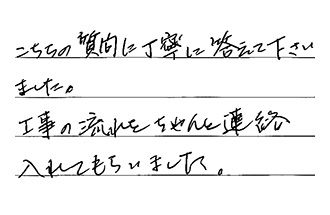 こちらの質問に丁寧に答えて下さい
ました。
工事の流れをちゃんと連絡
入れてもらいました。